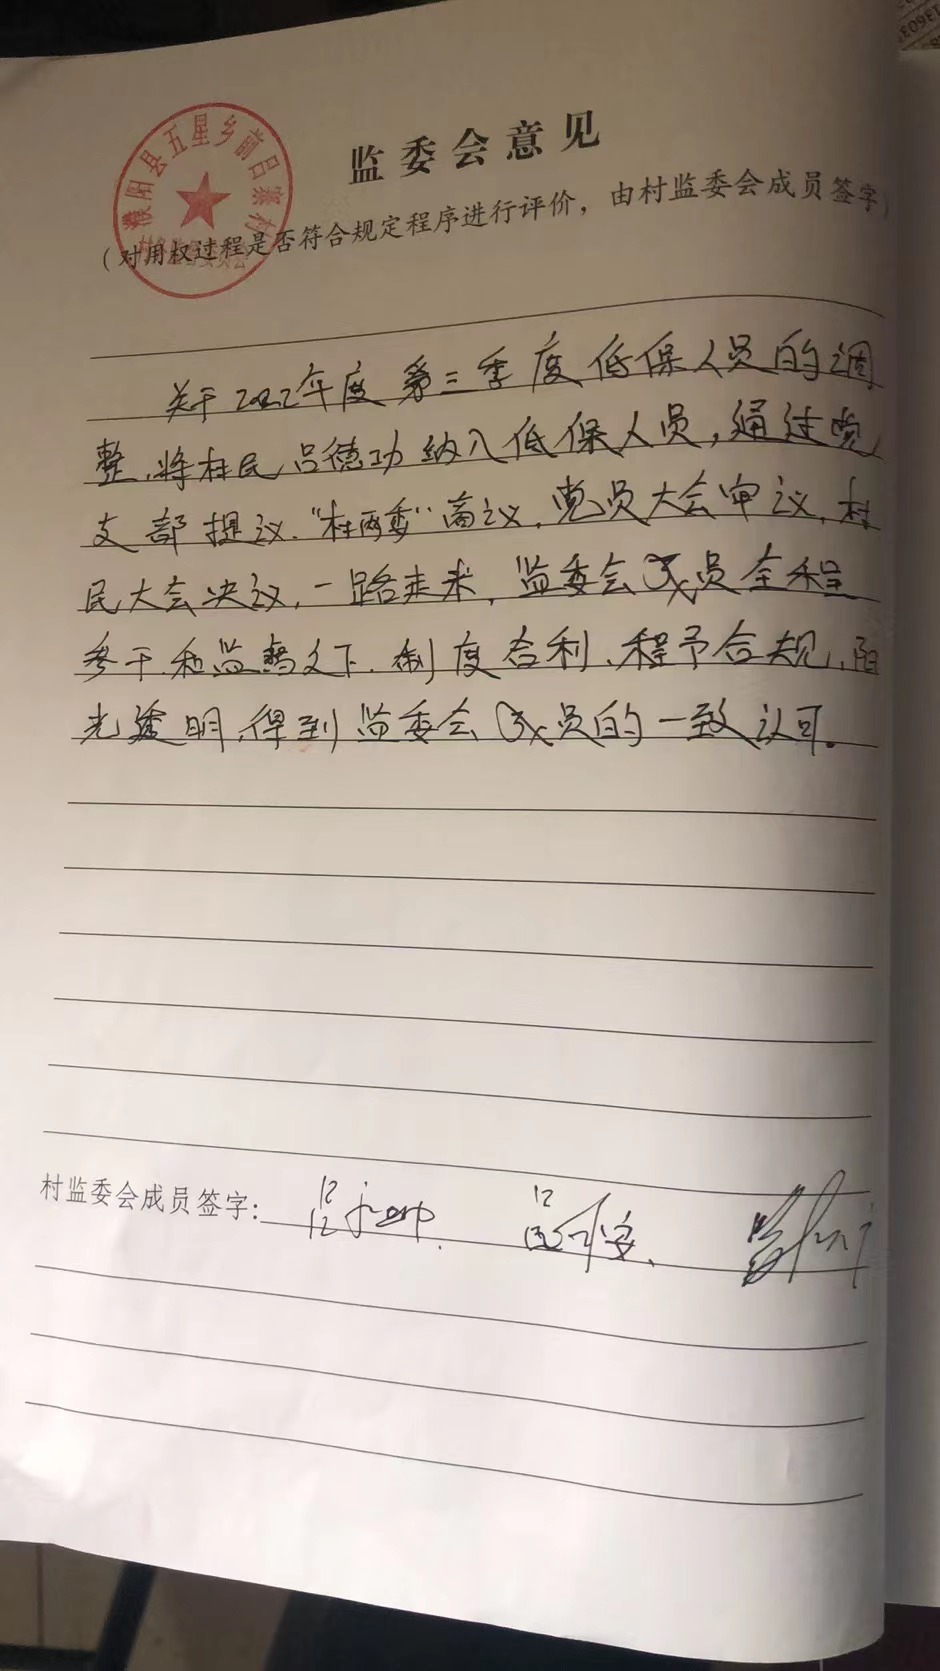 监委会意见
濮阳县五星乡前吕寨村
（对用权过程是否符合规定程序进行评价，由村监委会成员签字）
关于2022年度第三季度低保人员的调
整，将村民吕德功纳入低保人员，通过党
支部提议."村两委"商议，党员大会审议，村
民大会决议，一路走来，监委会成员全程
参于和监督之下.制度合利、程予合规，阳
光透明，得到监委会成员的一致认可。
村监委会成员签字：